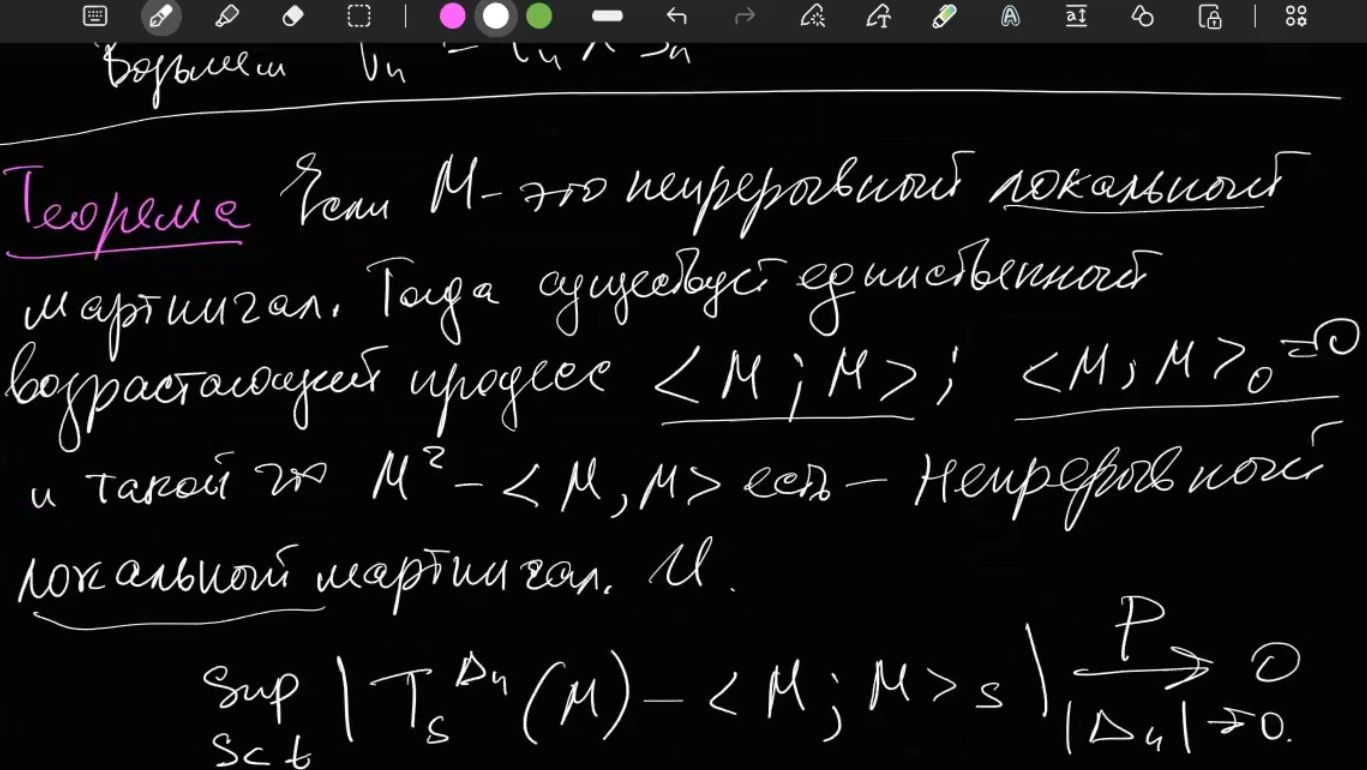 Возьмем
Теорема Если M - это непрерывный локальный
мартингал. Тогда существует единственный
возрастающий процесс <M; M>; <M, M>₀ = 0
и такой что M² - <M, M> есть - непрерывный
локальный мартингал. И.
sup |T_s^Δn (M) - <M; M>_s| P→ 0
s≤t |Δn| → 0.